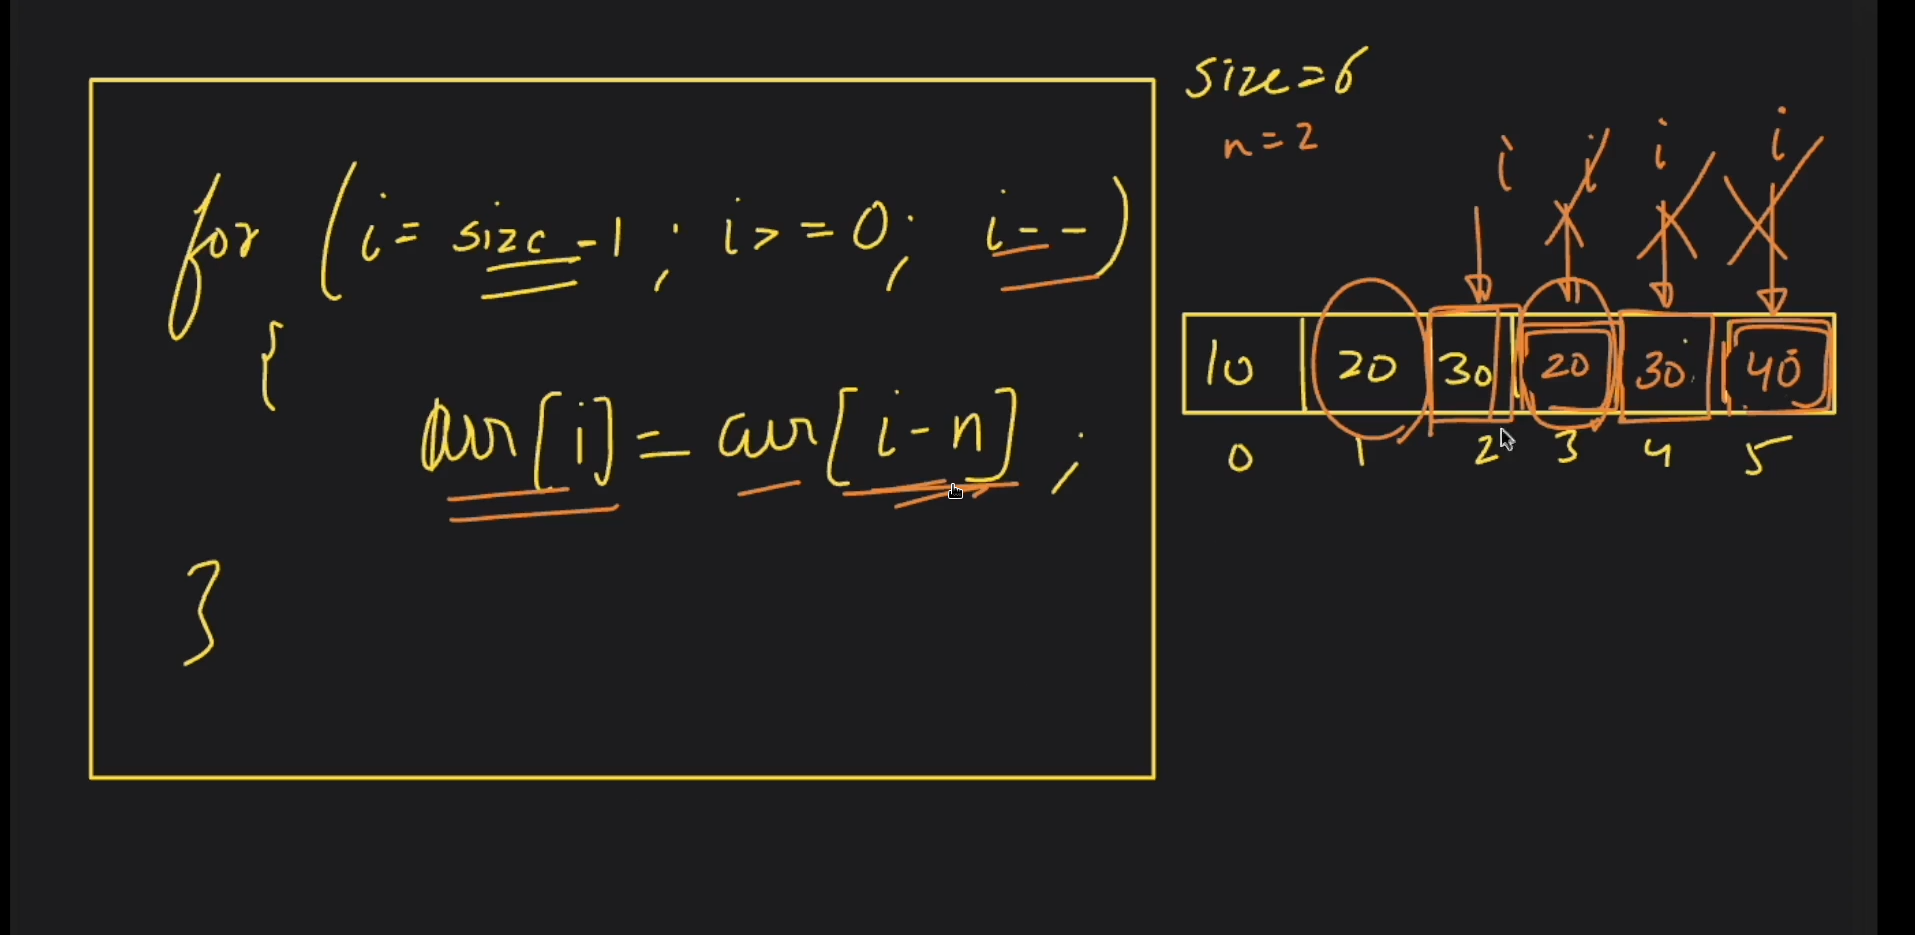 for (i = size - 1 ; i >= 0 ; i--)
{
arr[i] = arr[i-n] ;
}
size = 6
n = 2
i i i i
10 20 30 20 30 40
0 1 2 3 4 5